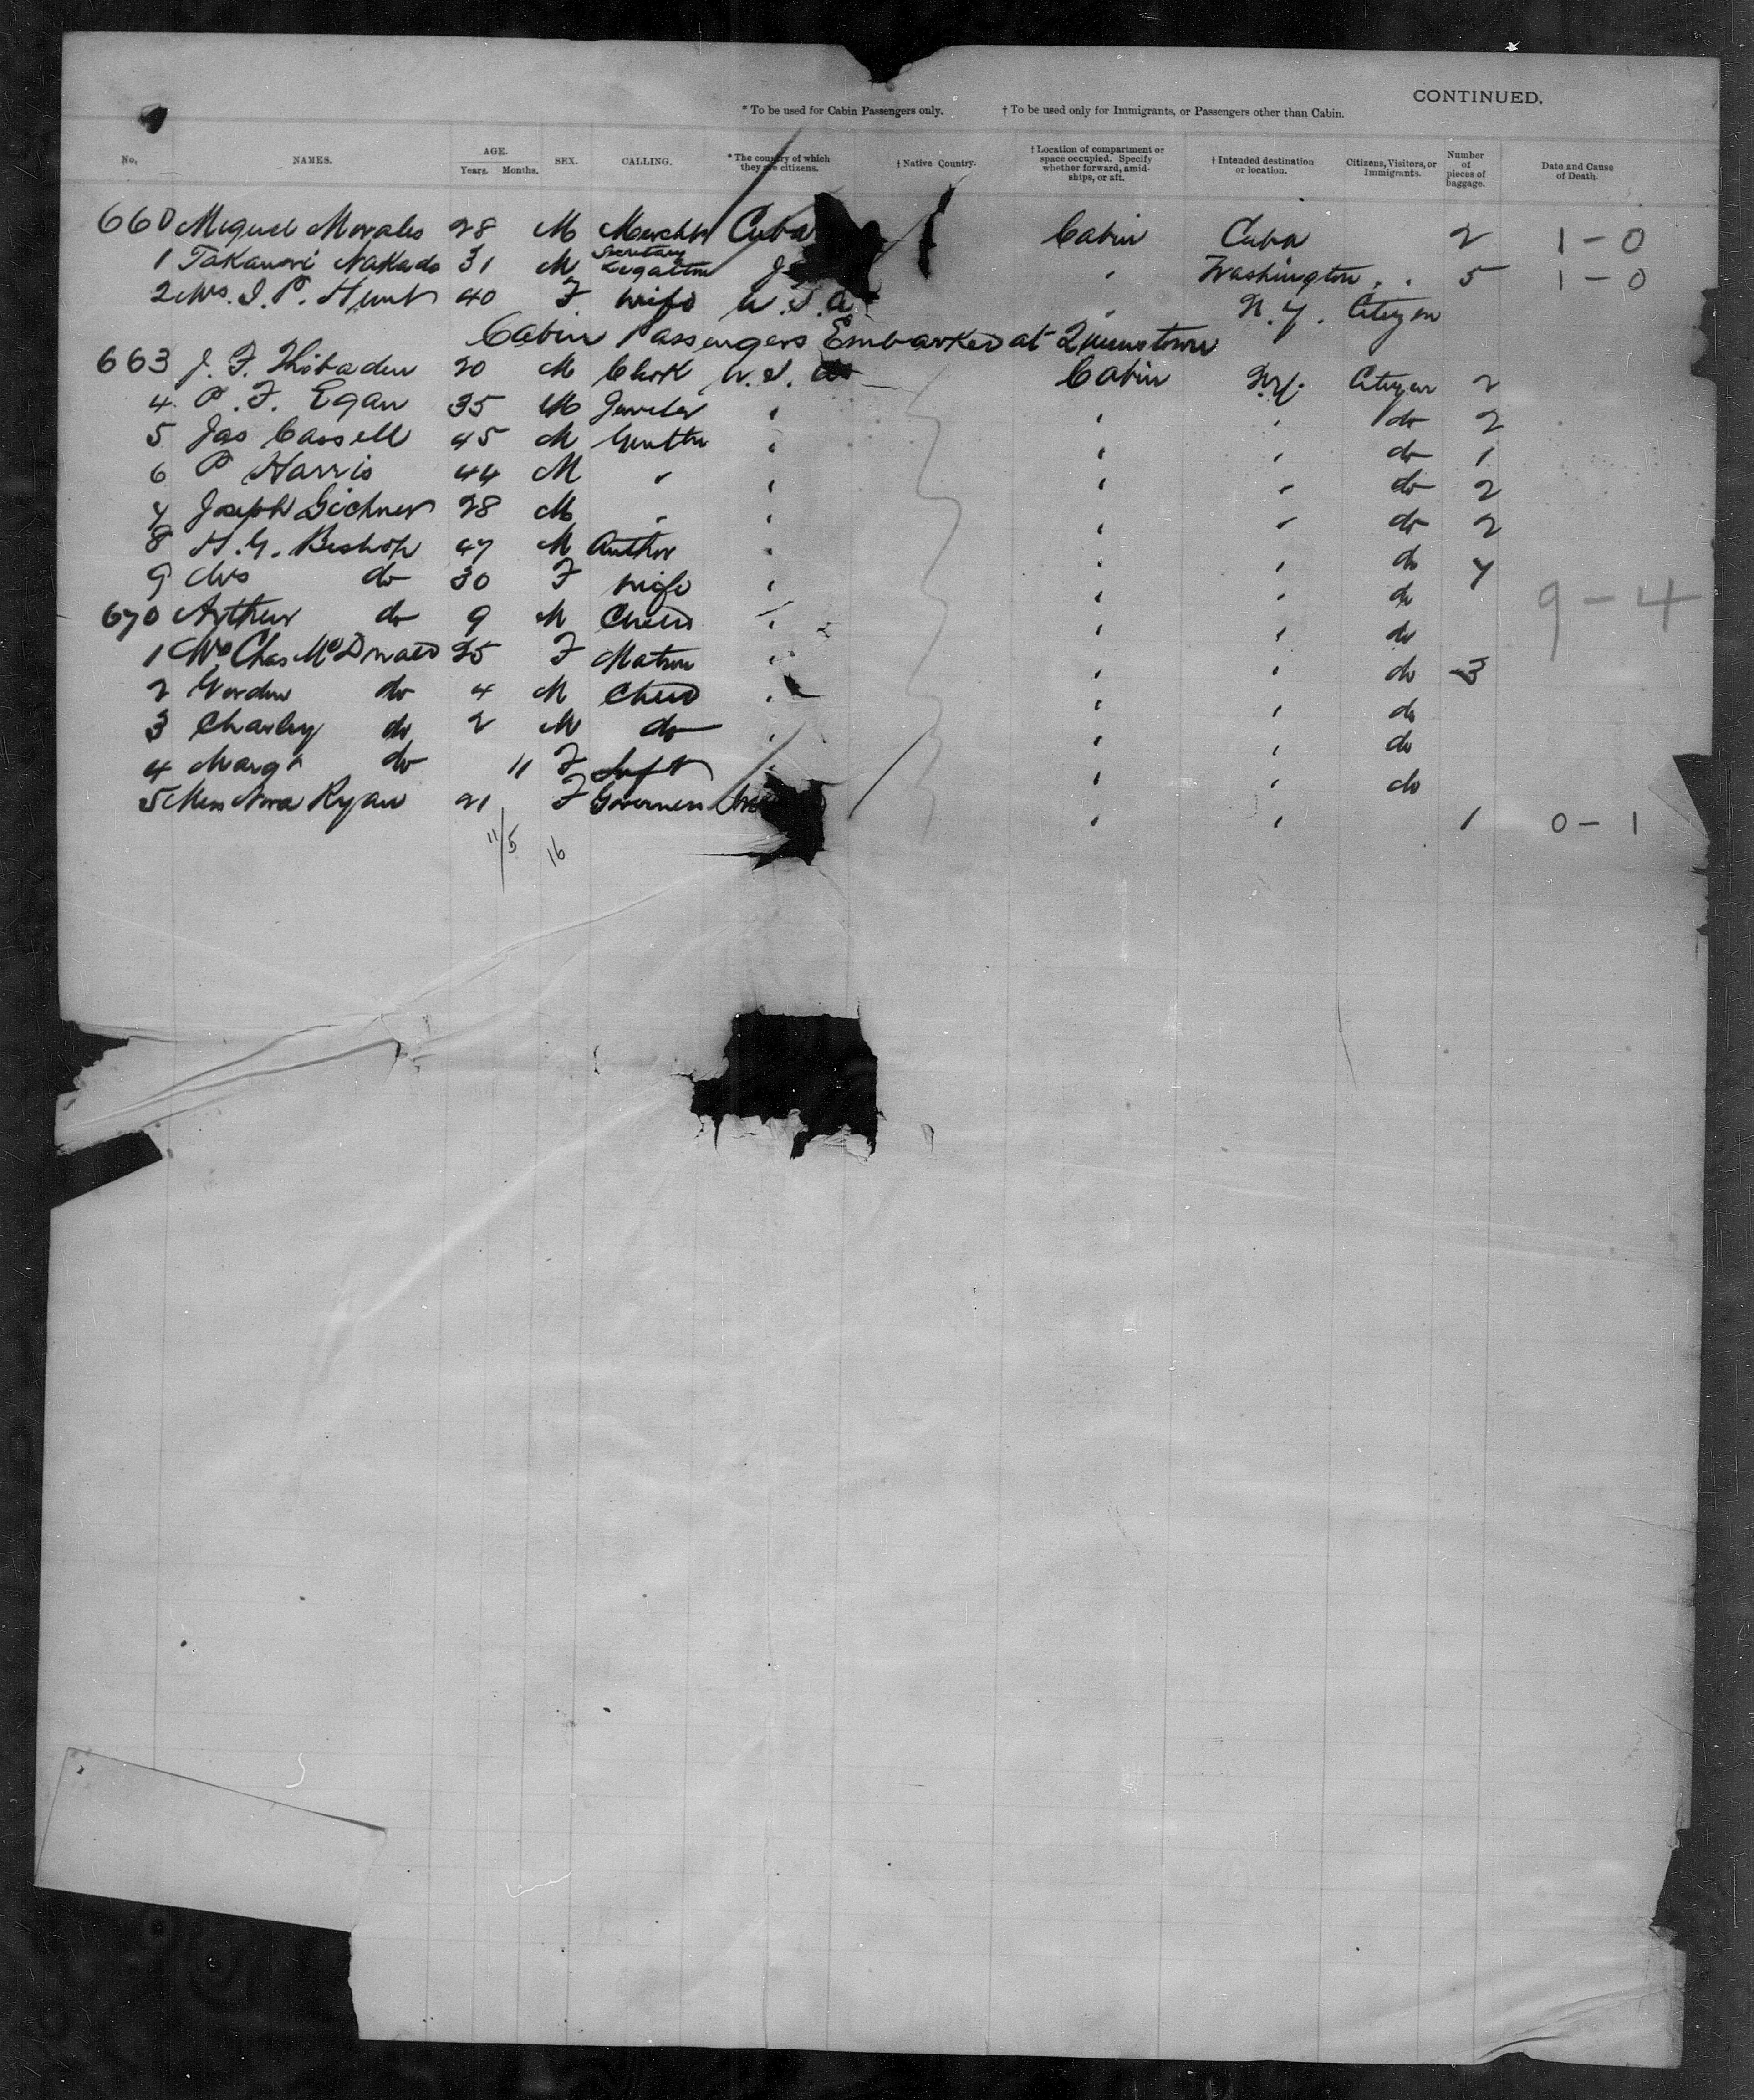 CONTINUED.
* To be used for Cabin Passengers only. † To be used only for Immigrants, or Passengers other than Cabin.
No. NAMES. AGE. Years. Months. SEX. CALLING. * The country of which they are citizens. † Native Country. † Location of compartment or space occupied. Specify whether forward, amidships, or aft. † Intended destination or location. Citizens, Visitors, or Immigrants. Number of pieces of baggage. Date and Cause of Death.
660 Miguel Morales 28 M Mercht Cuba Cabin Cuba 2 1-0
1 Takanori Nakado 31 M Secretary Legation " Washington . . 5 1-0
2 Mrs. I. P. Hunt 40 F. Wife U.S.A. " N.Y. Citizen
Cabin Passengers Embarked at Queenstown
663 J. F. Thibaden 20 M Clerk U.S. Cabin N.Y. Citizen 2
4 P. F. Egan 35 M Jeweler " " " do 2
5 Jas Cassell 45 M Gentln " " " do 1
6 P Harris 44 M " " " " do 2
7 Joseph Gichner 28 M " " " " do 2
8 H. G. Bishop 47 M Author " " " do 7
9 Mrs do 30 F Wife " " " do
670 Arthur do 9 M Child " " " do 9-4
1 Mrs Chas McDonald 25 F Matron " " " do 3
2 Gordon do 4 M Child " " " do
3 Charley do 2 M do " " " do
4 Margt do 11 F Inft " " " do
5 Miss Nora Ryan 21 F Governess " " 1 0-1
11/5 16